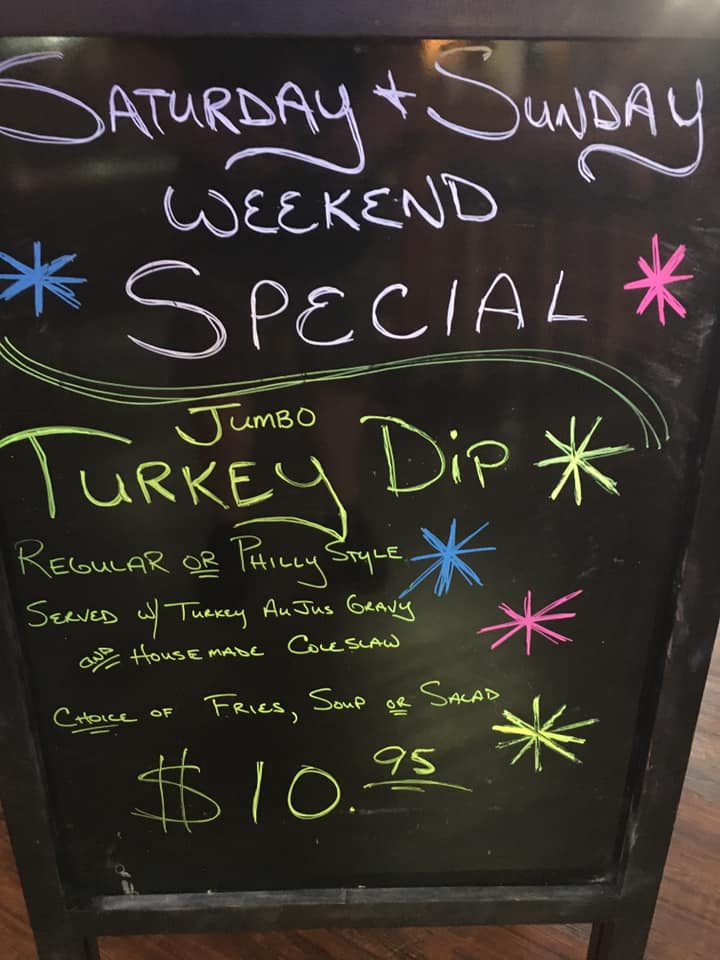 SATURDAY + SUNDAY
WEEKEND
SPECIAL
JUMBO
TURKEY DIP
REGULAR OR PHILLY STYLE
SERVED W/ TURKEY AUJUS GRAVY
AND HOUSEMADE COLESLAW
CHOICE OF FRIES, SOUP OR SALAD
$10.95